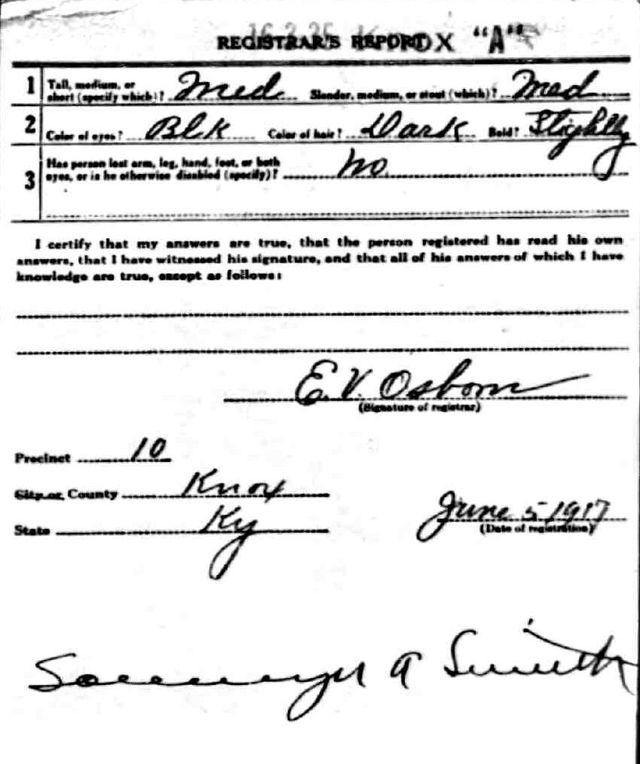 REGISTRAR'S REPORT X "A"
1 Tall, medium, or short (specify which)? Med Slender, medium, or stout (which)? Med
2 Color of eyes? Blk Color of hair? Dark Bald? Slightly
3 Has person lost arm, leg, hand, foot, or both eyes, or is he otherwise disabled (specify)? No
I certify that my answers are true, that the person registered has read his own
answers, that I have witnessed his signature, and that all of his answers of which I have
knowledge are true, except as follows:
E. V. Osborn
(Signature of registrar)
Precinct 10
City or County Knox
State Ky
June 5 1917
(Date of registration)
A Smith